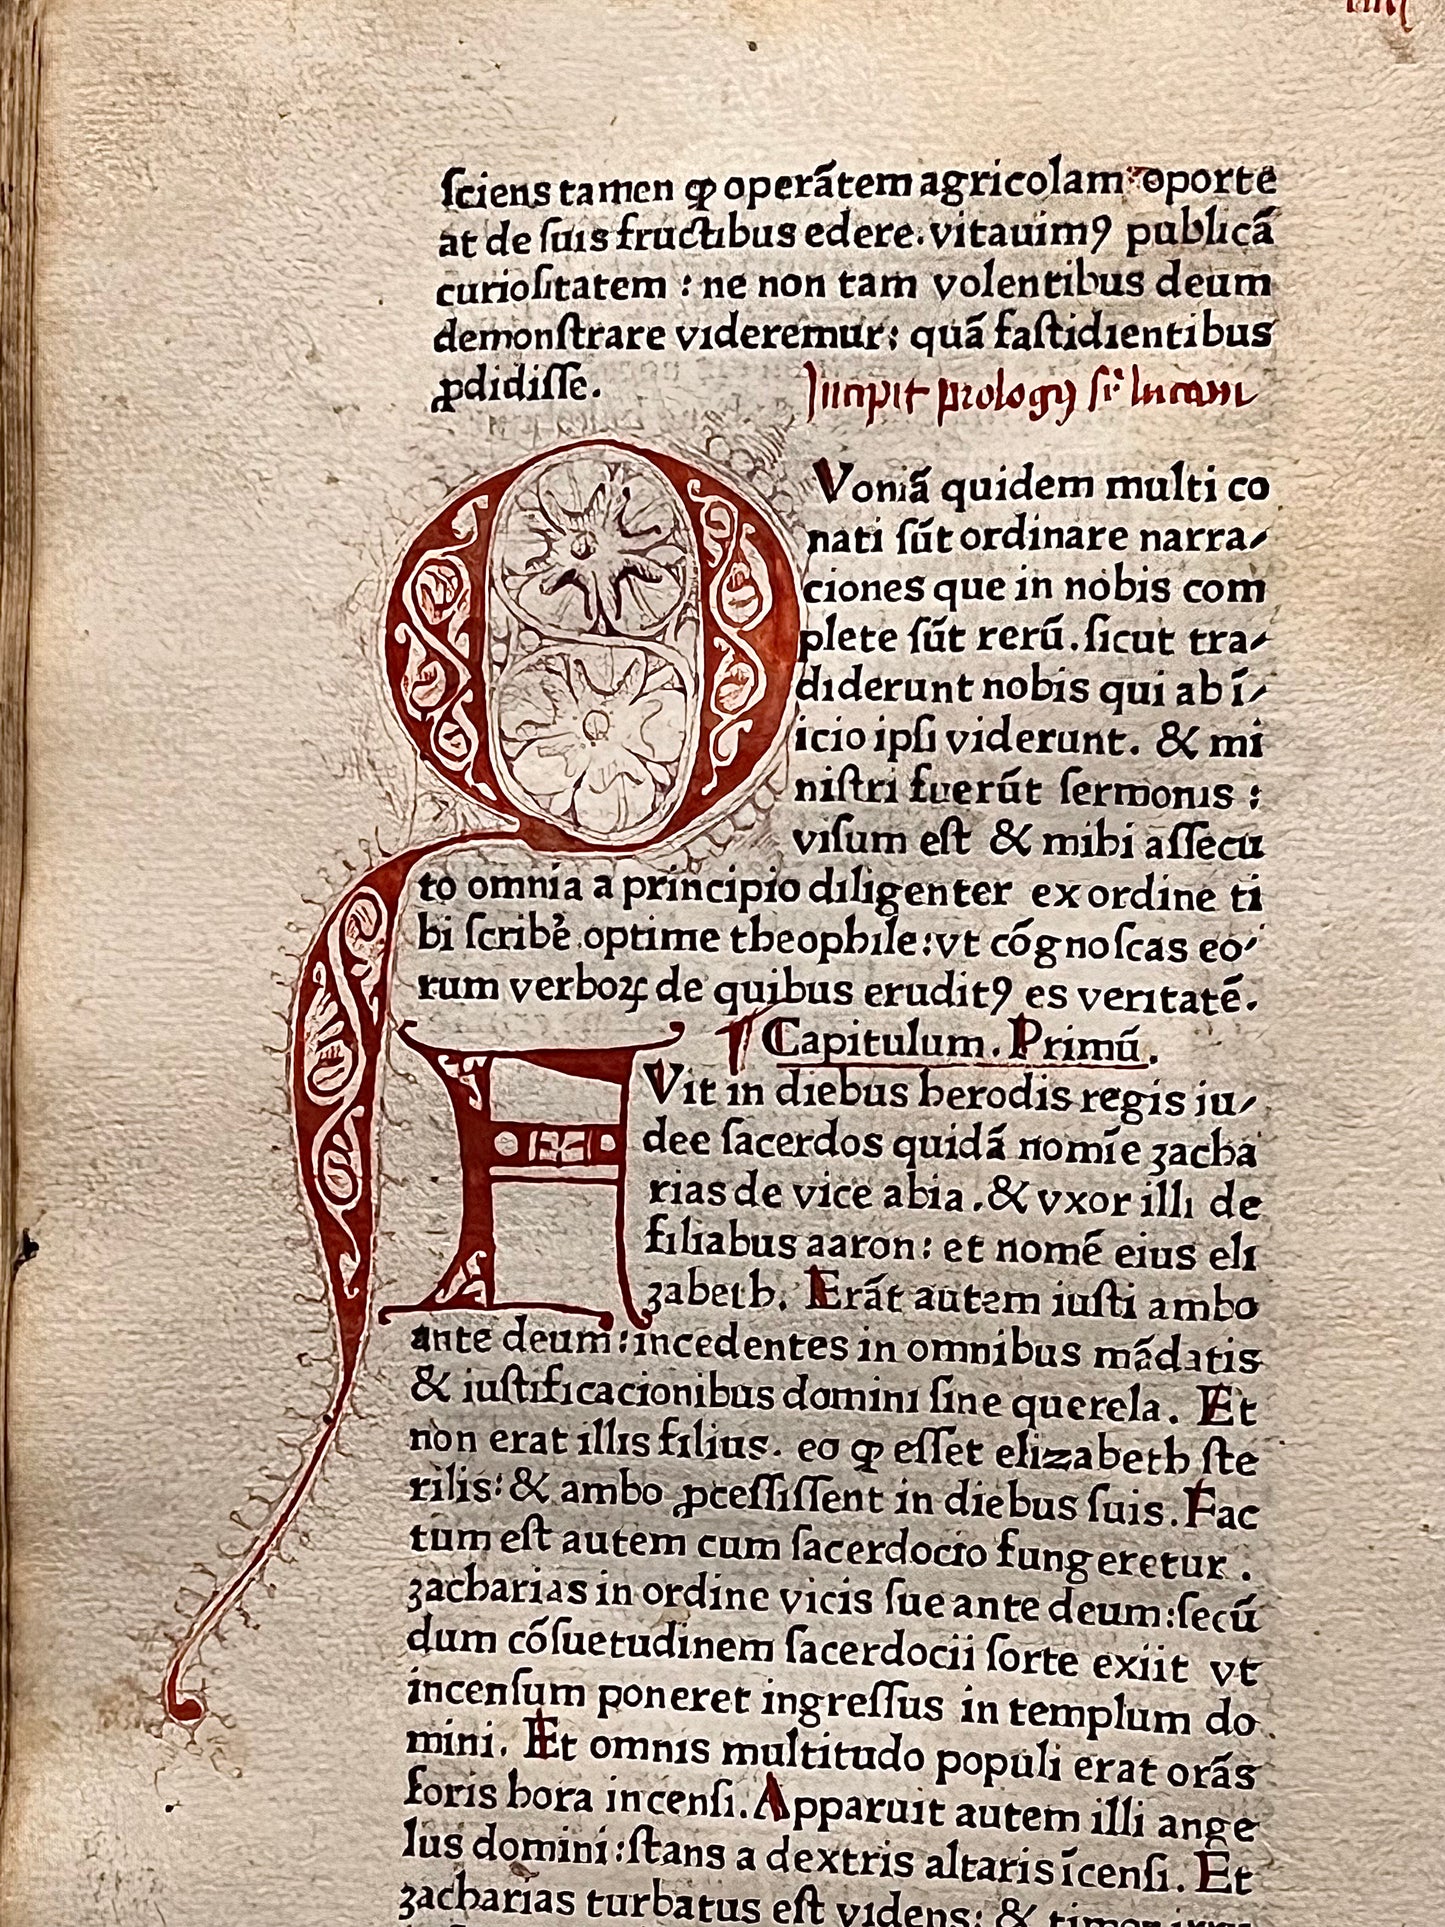 ſciens tamen ꝙ operãtem agricolam oporte
at de ſuis fructibus edere. vitauimꝰ publicã
curioſitatem : ne non tam volentibus deum
demonſtrare videremur: quã faſtidientibus
ꝓdidiſſe.
Incipit prologꝰ
QVoniã quidem multi co
nati ſũt ordinare narra-
ciones que in nobis com
plete ſũt rerũ. ſicut tra-
diderunt nobis qui ab ĩ-
icio ipſi viderunt. & mi
niſtri fuerũt ſermonis :
viſum eſt & mihi aſſecu
to omnia a principio diligenter ex ordine ti
bi ſcribẽ optime theophile: vt cõgnoſcas eo-
rum verboꝝ de quibus eruditꝰ es veritatẽ.
¶ Capitulum. Primũ.
FVit in diebus herodis regis iu-
dee ſacerdos quidã nomĩe zacha
rias de vice abia. & vxor illi de
filiabus aaron: et nomẽ eius eli
zabeth. Erãt autem iuſti ambo
ante deum: incedentes in omnibus mãdatis
& iuſtificacionibus domini ſine querela. Et
non erat illis filius. eo ꝙ eſſet elizabeth ſte
rilis: & ambo ꝓceſſiſſent in diebus ſuis. Fac
tum eſt autem cum ſacerdocio fungeretur.
zacharias in ordine vicis ſue ante deum: ſecũ
dum cõſuetudinem ſacerdocii ſorte exiit vt
incenſum poneret ingreſſus in templum do
mini. Et omnis multitudo populi erat orãs
foris hora incenſi. Apparuit autem illi ange
lus domini: ſtans a dextris altaris ĩcenſi. Et
zacharias turbatus eſt videns: & timor